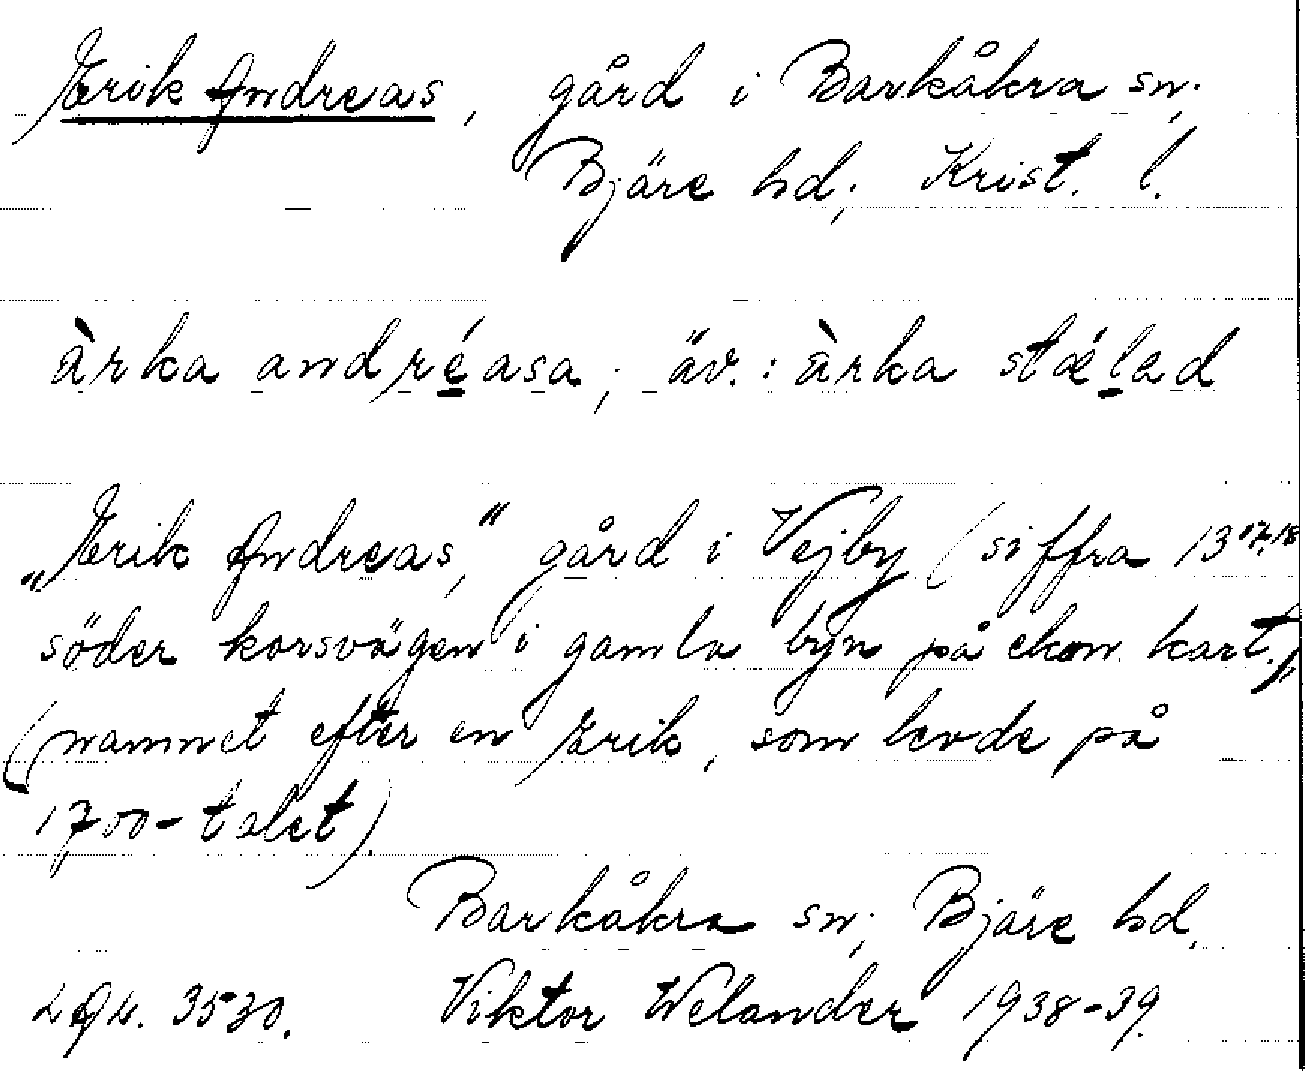 Erik Andreas, gård i Barkåkra sn;
Bjäre hd; Krist. l.
àrka andréasa; äv.: àrka stælad
„Erik Andreas", gård i Vejby (siffra 13 17,18
söder korsvägen i gamla byn på ekon. kart.),
(namnet efter en Erik, som levde på
1700-talet).
Barkåkra sn; Bjäre hd,
3530. Viktor Welander 1938-39.